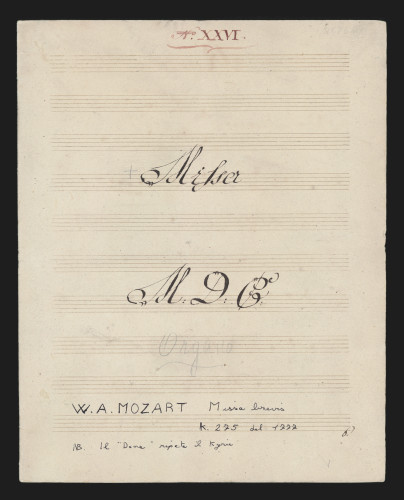 N.º XXVI.
Missa
M. D. C.
Organo
W. A. MOZART Missa brevis
K. 275 del 1777
NB. Il "Dona" ripete il Kyrie